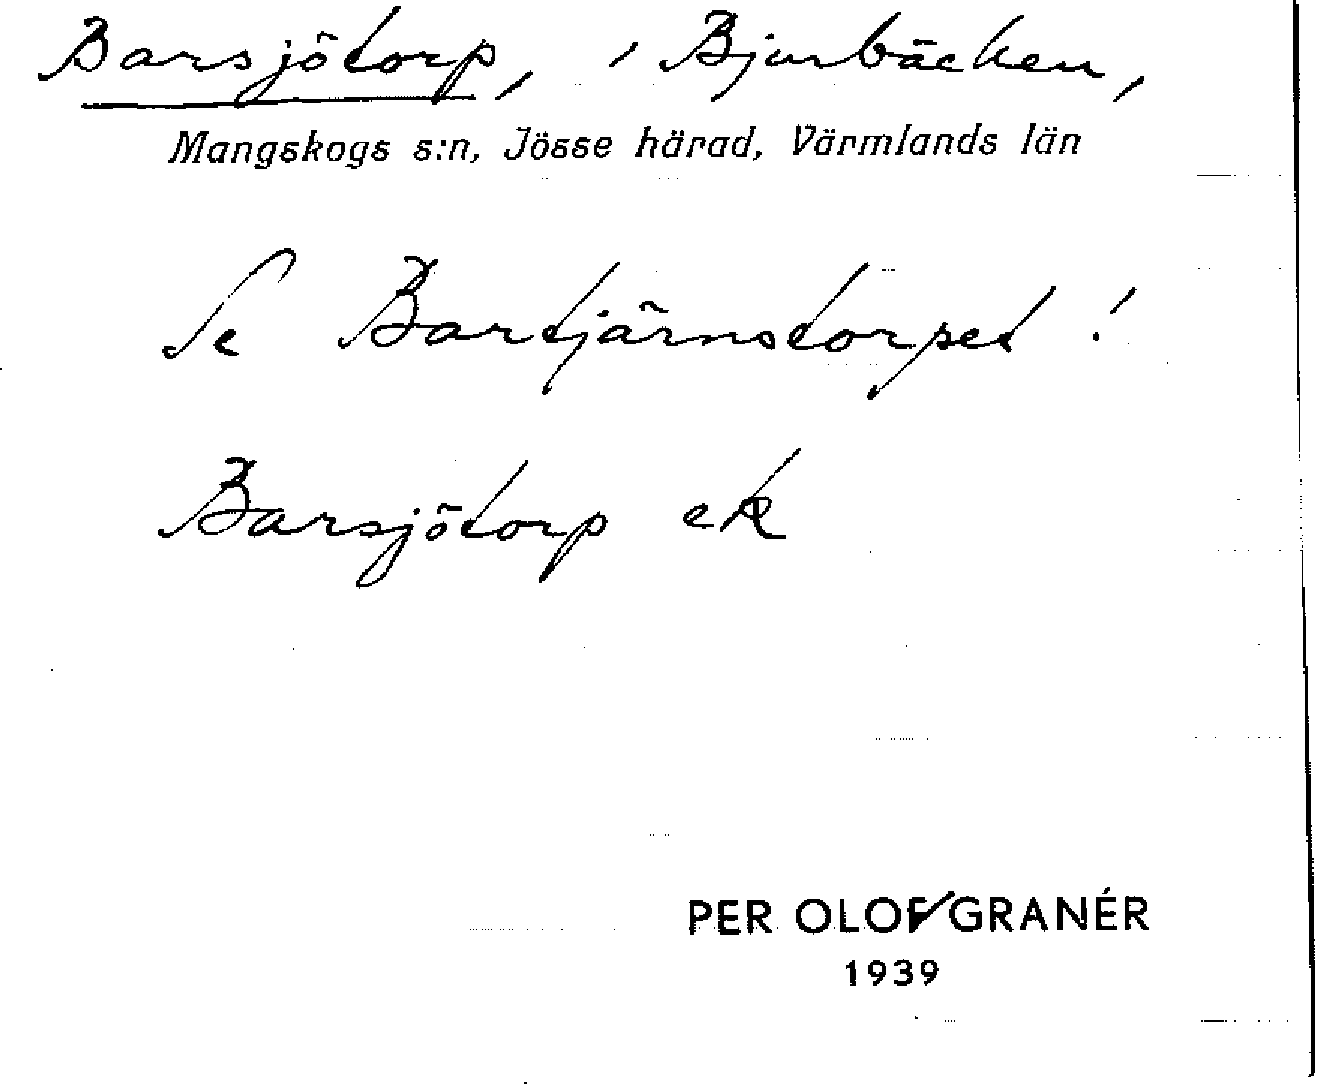 Barsjötorp, i Bjurbäcken,
Mangskogs s:n, Jösse härad, Värmlands län
Se Bartjärnstorpet!
Barsjötorp ek
PER OLOF GRANÉR
1939